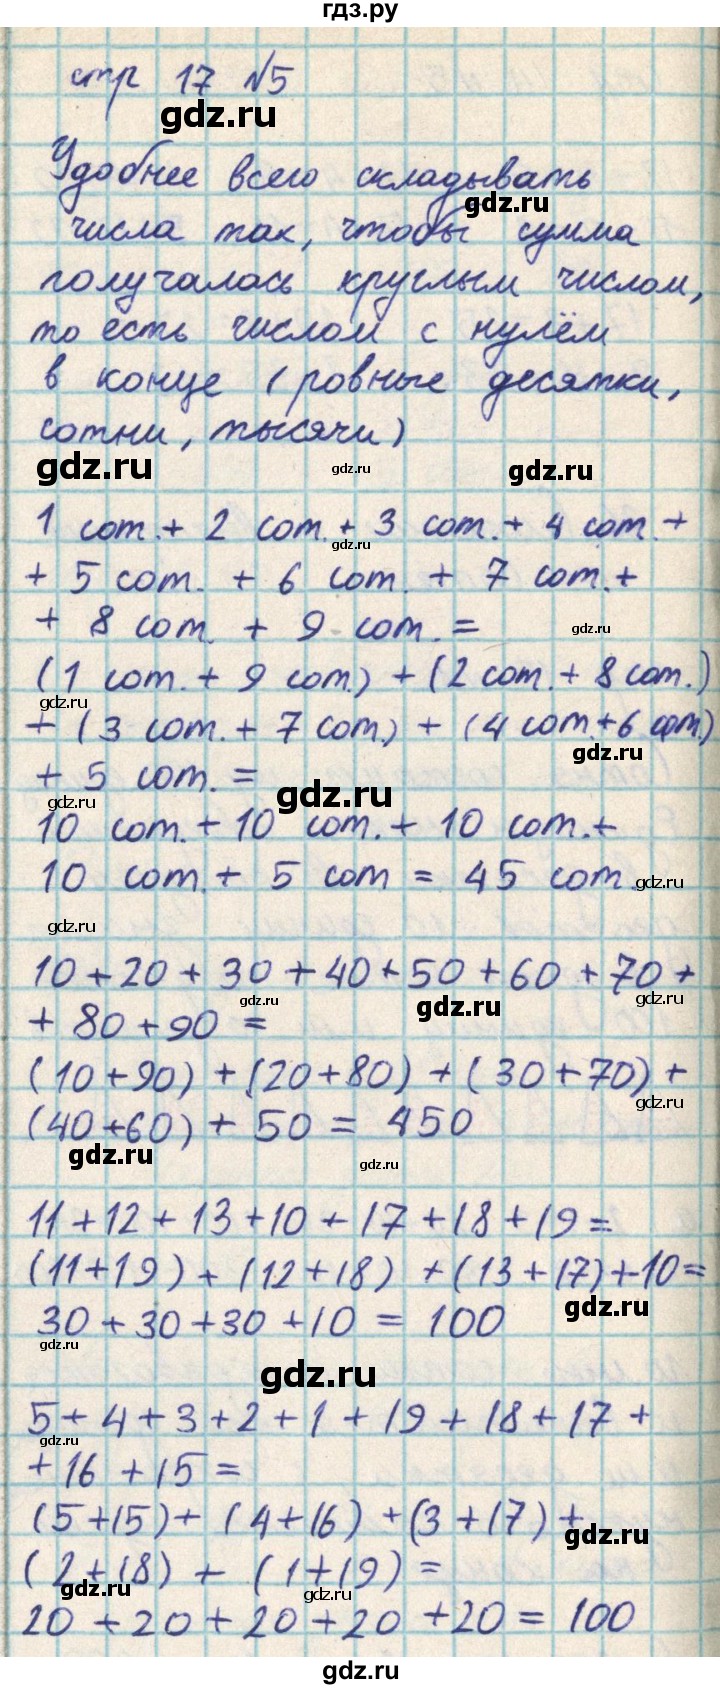 гдз.ру
стр 17 №5
gdz.ru
Удобнее всего складывать
gdz.ru
числа так, чтобы сумма
получалась круглым числом,
то есть числом с нулём
в конце (ровные десятки,
сотни, тысячи)
gdz.ru gdz.ru gdz.ru
1 сот. + 2 сот. + 3 сот. + 4 сот. +
gdz.ru
+ 5 сот. + 6 сот. + 7 сот. +
+ 8 сот. + 9 сот. =
gdz.ru
(1 сот. + 9 сот.) + (2 сот. + 8 сот.)
gdz.ru
+ (3 сот. + 7 сот.) + (4 сот. + 6 сот.)
gdz.ru
+ 5 сот. =
gdz.ru gdz.ru
10 сот. + 10 сот. + 10 сот. +
10 сот. + 5 сот = 45 сот.
gdz.ru
gdz.ru
10 + 20 + 30 + 40 + 50 + 60 + 70 +
gdz.ru gdz.ru gdz.ru
+ 80 + 90 =
(10 + 90) + (20 + 80) + (30 + 70) +
gdz.ru
(40 + 60) + 50 = 450
gdz.ru gdz.ru
11 + 12 + 13 + 10 + 17 + 18 + 19 =
(11 + 19) + (12 + 18) + (13 + 17) + 10 =
gdz.ru
30 + 30 + 30 + 10 = 100
gdz.ru
gdz.ru
5 + 4 + 3 + 2 + 1 + 19 + 18 + 17 +
gdz.ru
+ 16 + 15 =
(5 + 15) + (4 + 16) + (3 + 17) +
gdz.ru
(2 + 18) + (1 + 19) =
gdz.ru gdz.ru
20 + 20 + 20 + 20 + 20 = 100
gdz.ru